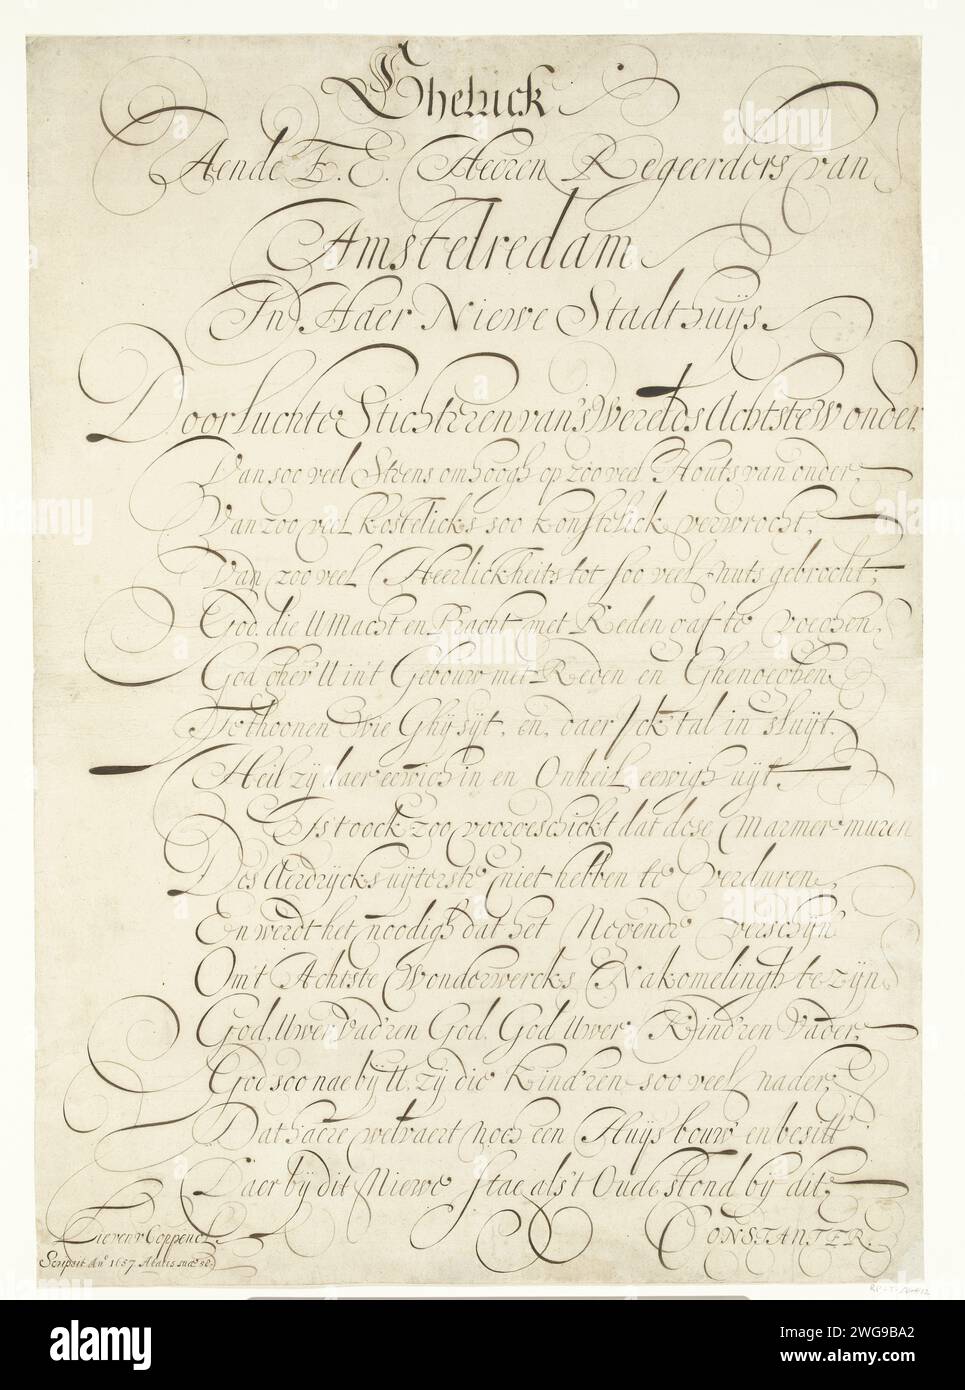 Gheluck
Aende E. E. Heeren Regeerders van
Amstelredam
In Haer Niewe Stadthuijs.
Doorluchte Stichteren van's Werelds Achtste Wonder,
Van soo veel Steens omhoogh op zoo veel Houts van onder,
Van zoo veel kostelicks soo konstelick verwrocht,
Van zoo veel Heerlickheits tot soo veel nuts gebrocht;
God, die U Macht en Pracht met Reden gaf te voeghen,
God ghev' U in't Gebouw met Reden en Ghenoeghen
Te thoonen wie Ghy syt, en, daer Ick tal in sluyt,
Heil zy daer eewich in en Onheil eewigh uyt.
Is't oock zoo voorgeschickt dat dese Marmer-muren
Des Aerdrycks uyterste niet hebben te verduren,
En werdt het noodigh dat het Negende verschijn'
Om't Achtste Wonderwercks Nakomelingh te zijn,
God, Uwer Vad'ren God, God Uwer Kind'ren Vader,
God soo nae bij U, zij die Kind'ren soo veel nader,
Dat haere welvaert noch een Huijs bouw' en besitt'
Daer bij dit Niewe stae als't Oude stond bij dit.
CONSTANTER.
Lieven v Coppenol.
Scripsit Anº 1657. Ætatis suæ 58.
alamy
Image ID: 2WG9BA2
www.alamy.com